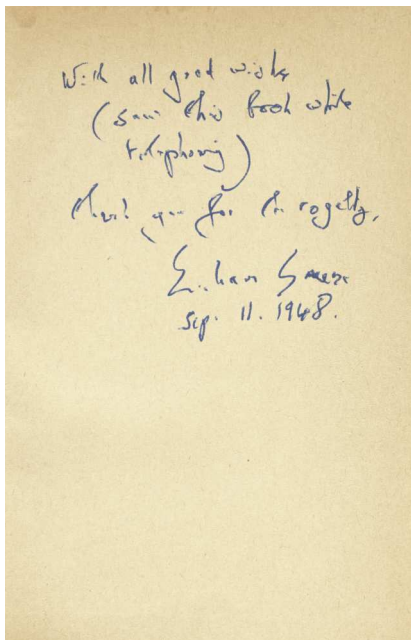 With all good wishes
(saw this book while
telephoning)
thank you for the royalty,
Sep. 11. 1948.